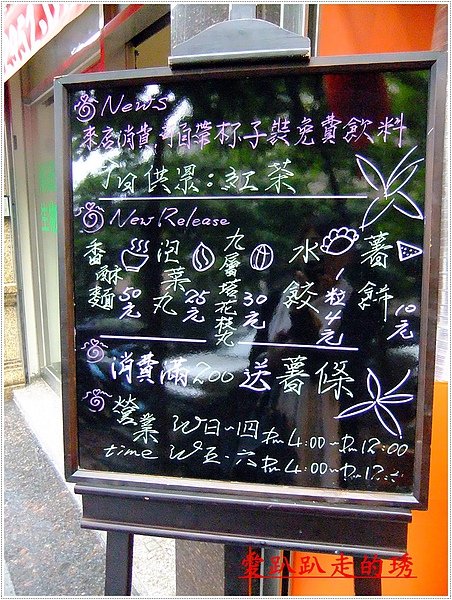 News
來店消費,可自帶杯子裝免費飲料
今日供眾:紅茶
New Release
香酥麵 50元
泡菜丸 25元
九層塔花枝丸 30元
水餃 1粒4元
薯餅 10元
消費滿200送薯條
營業time
W日~四 Pm 4:00~Pm 12:00
W五.六 Pm 4:00~Pm 12:
愛趴趴走的琇